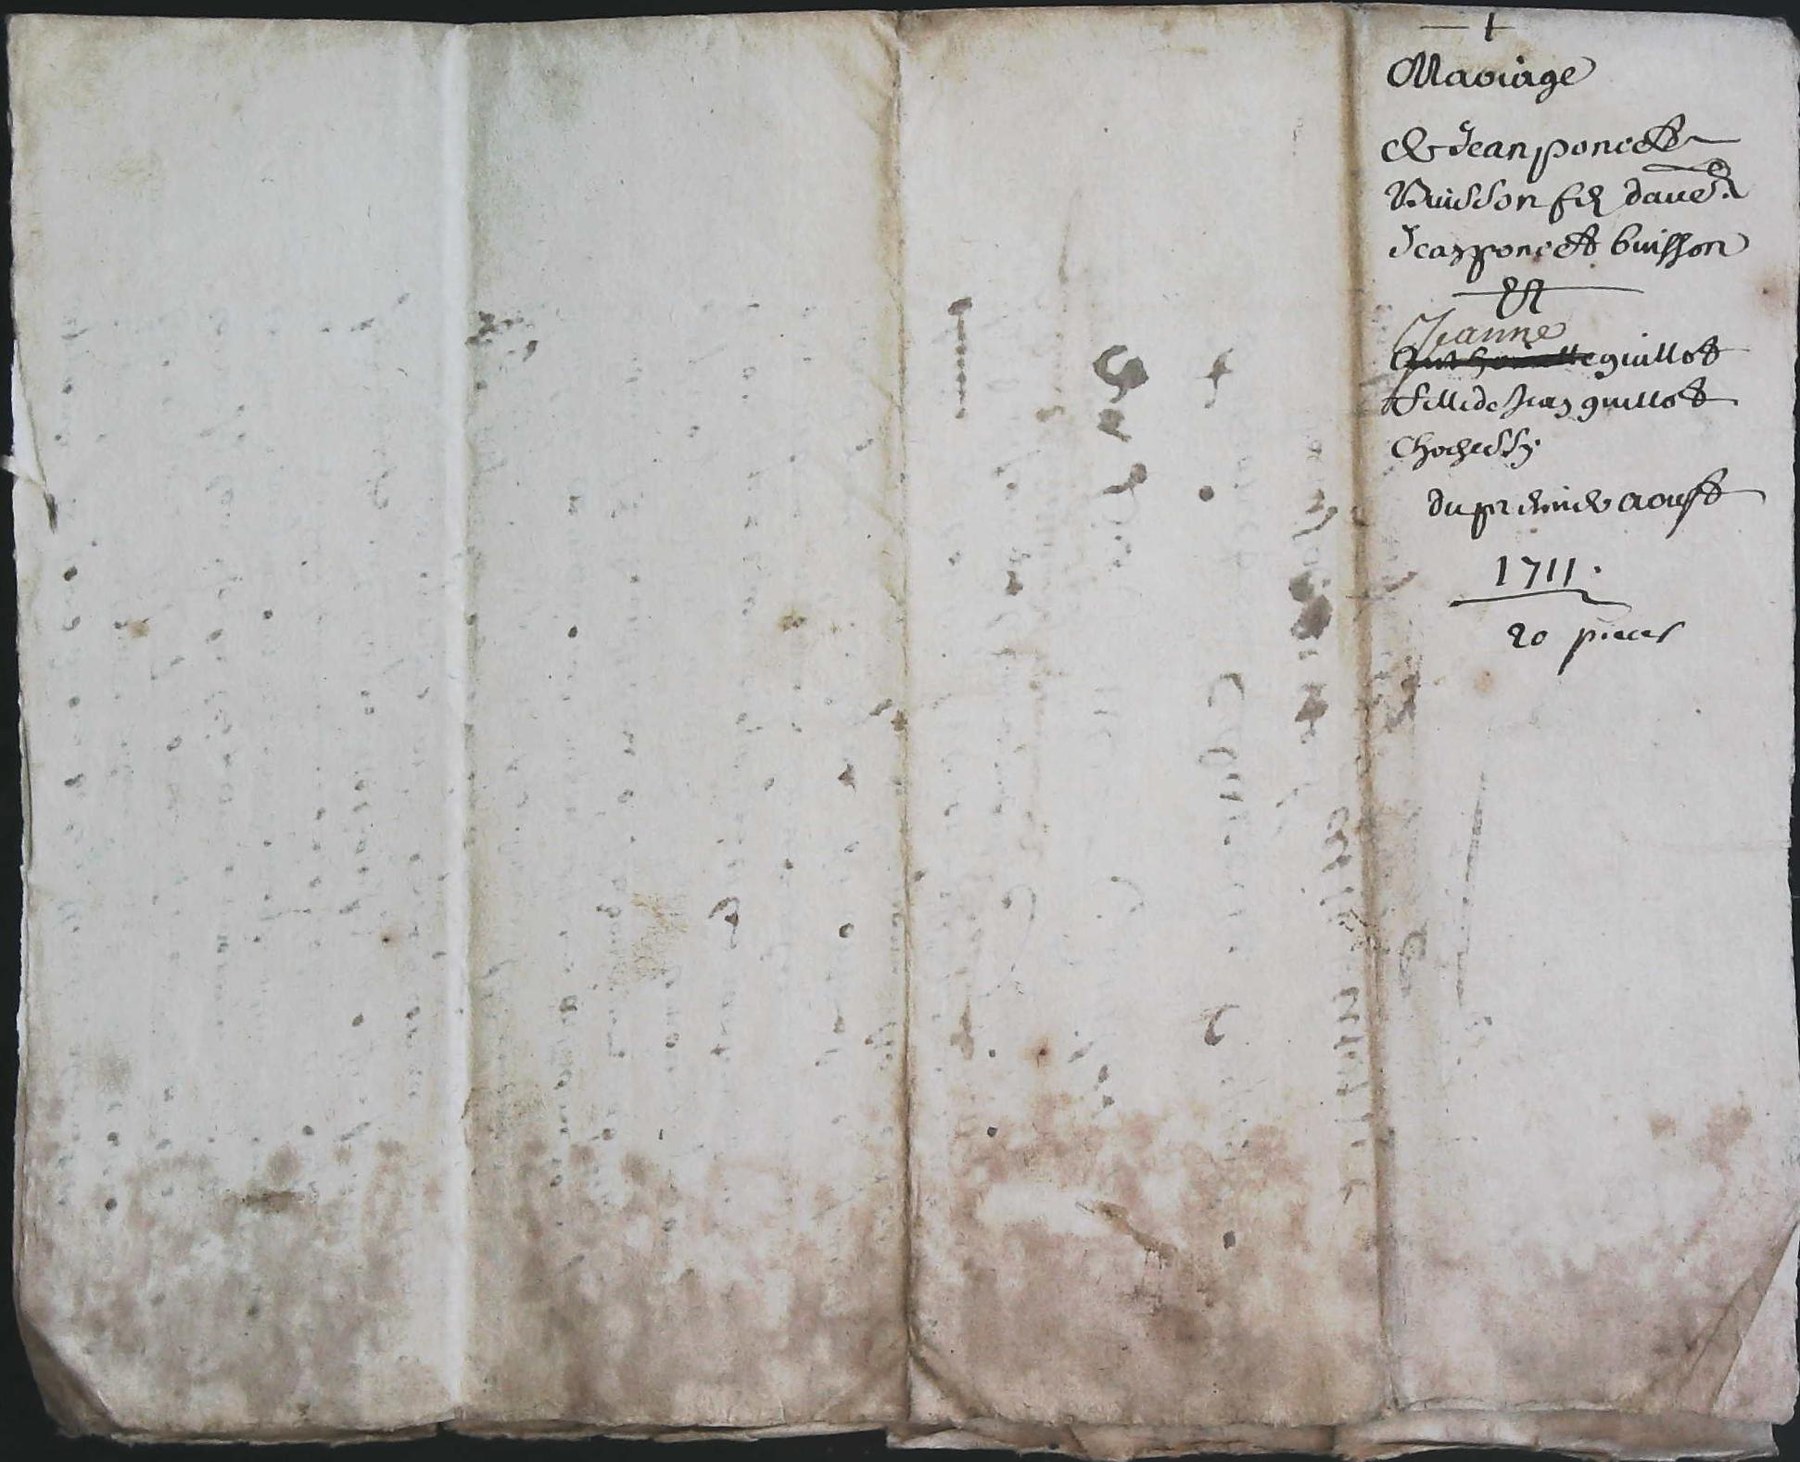 Mariage
de Jean poncet
Buisson filz d'aut.
Jean poncet buisson
Et
Jeanne
guillot
fille de Jean guillot
du premier aoust
1711.
20 pieces